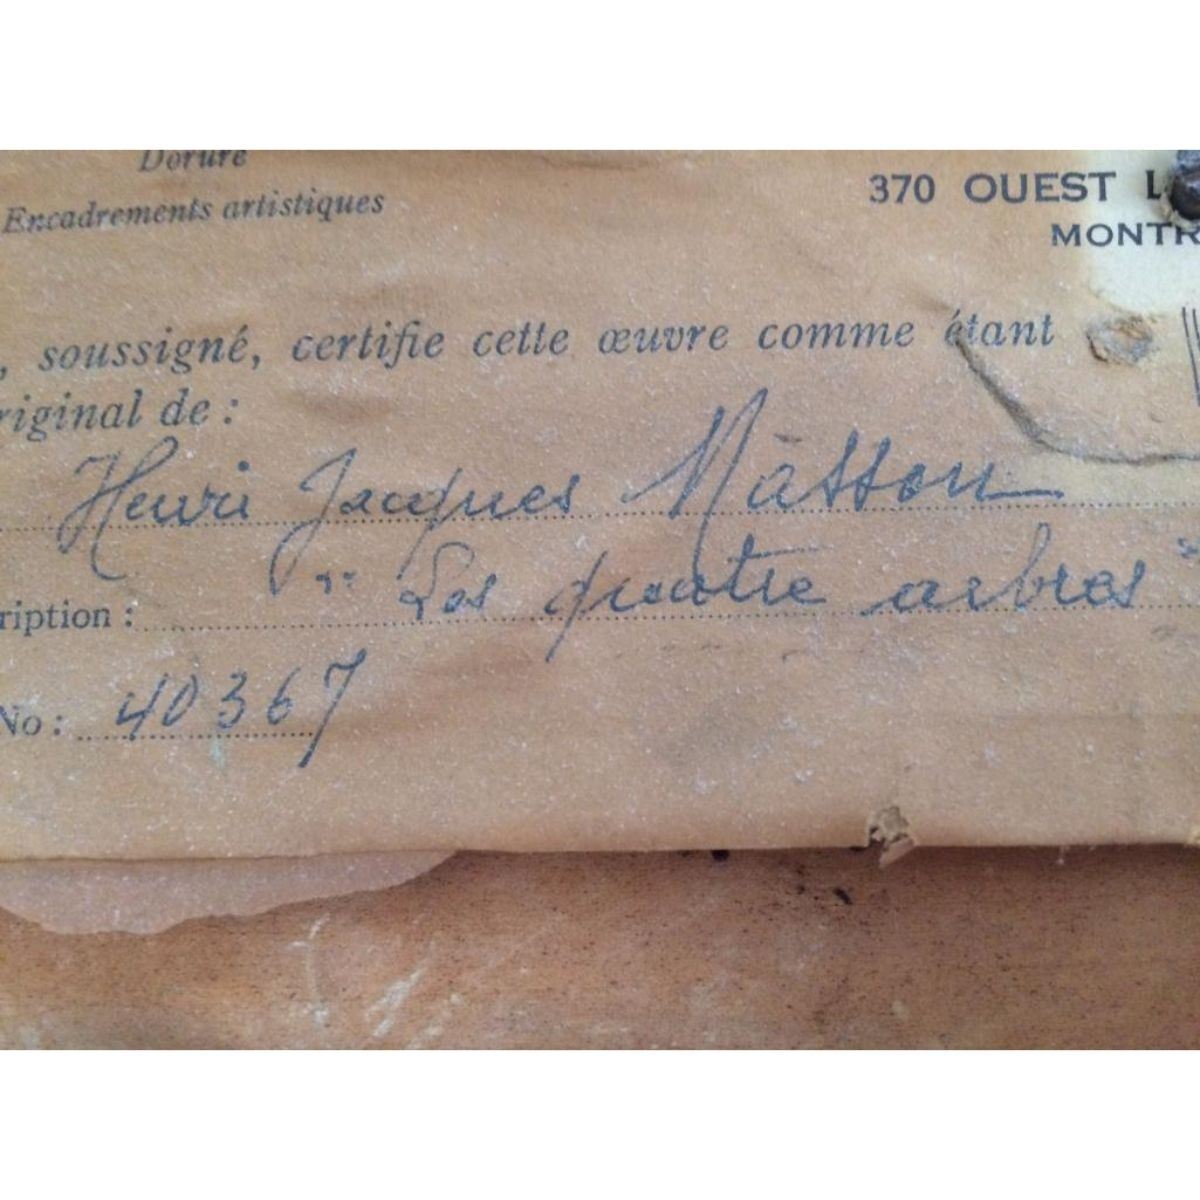 Dorure
Encadrements artistiques
370 OUEST L
MONTR
, soussigné, certifie cette œuvre comme étant
riginal de :
Henri Jacques Masson
ription : "Les quatre arbres"
No : 40367